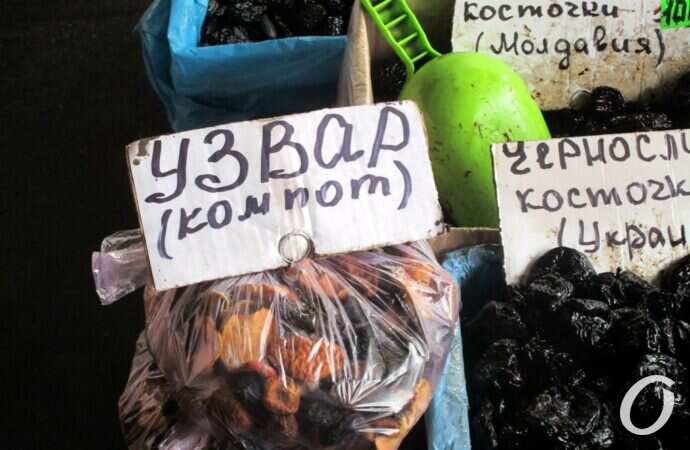 косточки
(Молдавия)
УЗВАР
(компот)
ЧЕРНОСЛИ
косточк
(Украи